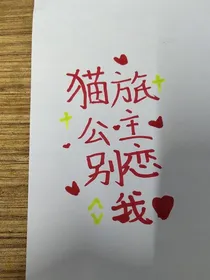 猫旅
公主
别恋
我